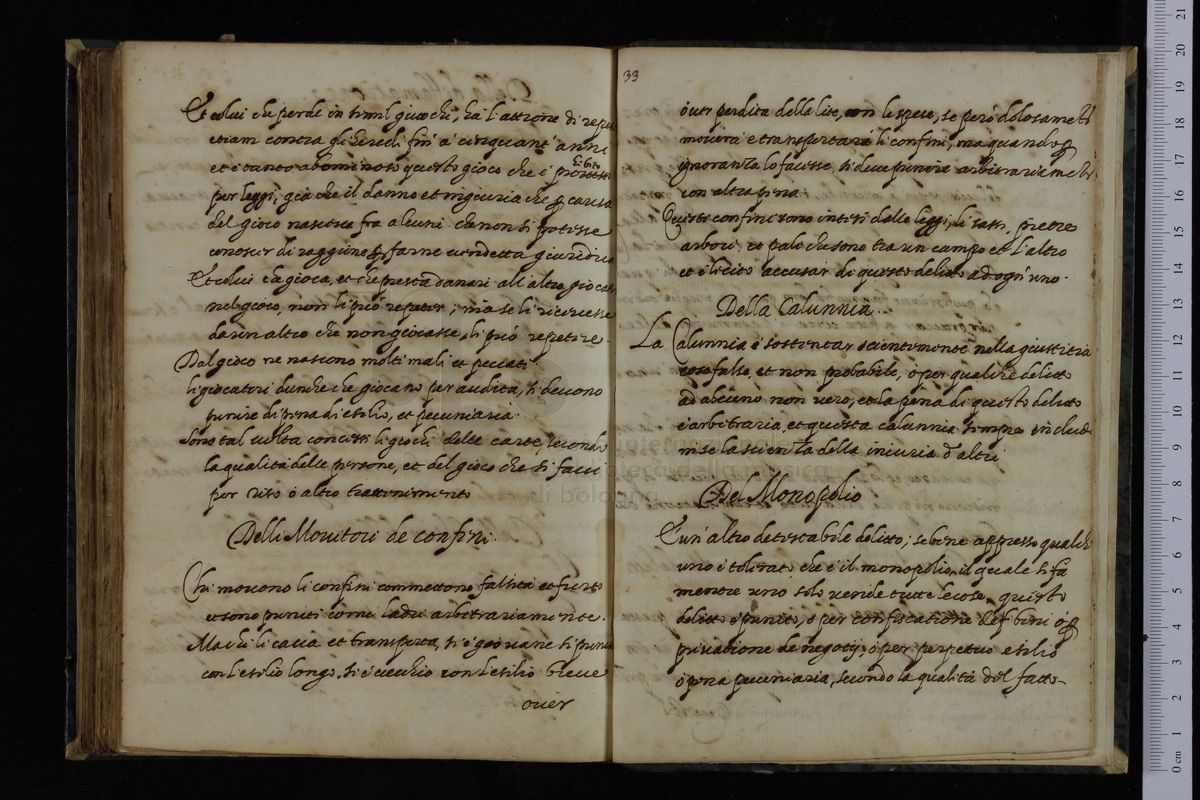 Et colui che perde in simil giuochi, ha l'attione di repet
etiam contra gli Heredi fin' à cinquant' anni
et è tanto abominoso questo gioco che è prohibito
per leggi, già che il danno et ingiuria che per causa
del gioco nascesse fra alcuni che non si potesse
conoscer di raggione per farne vendetta giuridica
Et colui che gioca, et che presta danari all' altro giocat
nel gioco, non li può repeter; ma se li ricevesse
da un altro che non giocasse, li può repetire.
Dal gioco ne nascono molti mali et peccati
li giocatori dunche che giocano per avidità, si devono
punire di pena di esilio, et pecuniaria.
sono tal volta concessi li giochi delle carte, secondo
la qualità delle persone, et del gioco che si facci
per vito ò altro trattenimento
Delli Movitori de confini.
Chi movono li confini commettono falsità et furto
et sono puniti come ladri arbitrariamente.
Ma chi li caccia et transporta, si è giovane si punisce
con l'esilio longo, si è vecchio con l'esilio breve
over
33
ò ver perdita della lite, con le spese, se però dolosamente
moverà e transportarà li confini, ma quando per
ignoranza lo facesse, si deve punire arbitrariamente
con altra pena
Questi confini sono intesi dalle leggi, li sassi, pietre
arbori, et pali che sono tra un campo et l'altro
et è lecito accusar di questo delitto ad ogn' uno.
Della Calunnia.
La Calunnia è sostentar scientemente nella giustitia
cosa falsa, et non probabile, ò per qualche delitto
ad alcuno non vero, et la pena di questo delitto
è arbitraria, et questa calunnia sempre include
in se la scienza della iniuria d'altri
Del Monopolio
È un' altro detestabile delitto, se bene appresso qualch
uno è tolerato, che è il monopolio, il quale si fa
mentre uno solo vende tutte le cose, questo
delitto è punito, ò per confiscatione de beni ò per
privatione de negotij, ò per perpetuo esilio
ò pena pecuniaria, secondo la qualità del fatto
internazionale
biblioteca della musica
di bologna